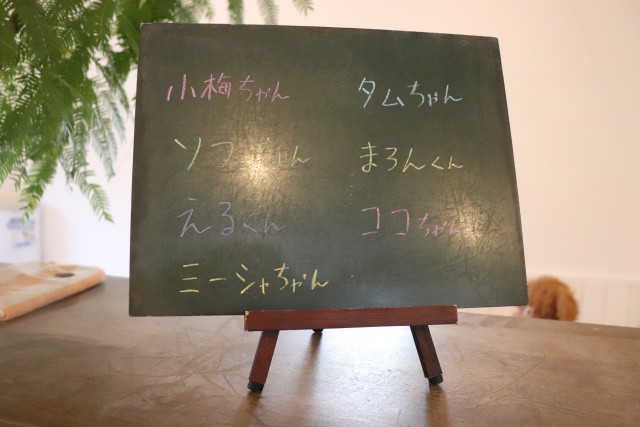 小梅ちゃん
ソフ
えるくん
ミーシャちゃん
タムちゃん
まろんくん
ココちゃん